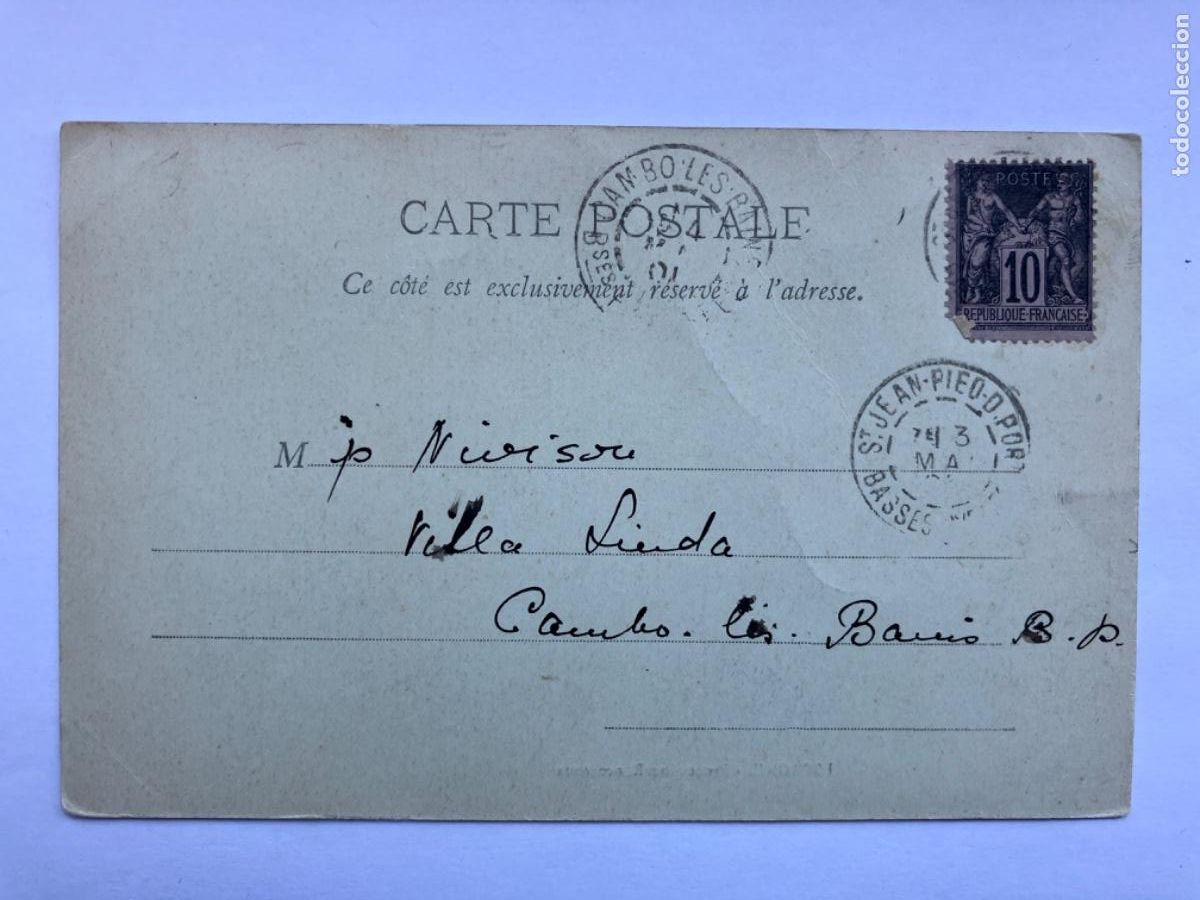 CARTE POSTALE
Ce côté est exclusivement réservé à l'adresse.
CAMBO-LES-BAINS
BSES
01
POSTES
10
REPUBLIQUE FRANÇAISE
ST JEAN-PIED-D-PORT
3
MA
BASSES
M p Nivison
Villa Linda
Cambo. les. Bains B. p.
todocoleccion